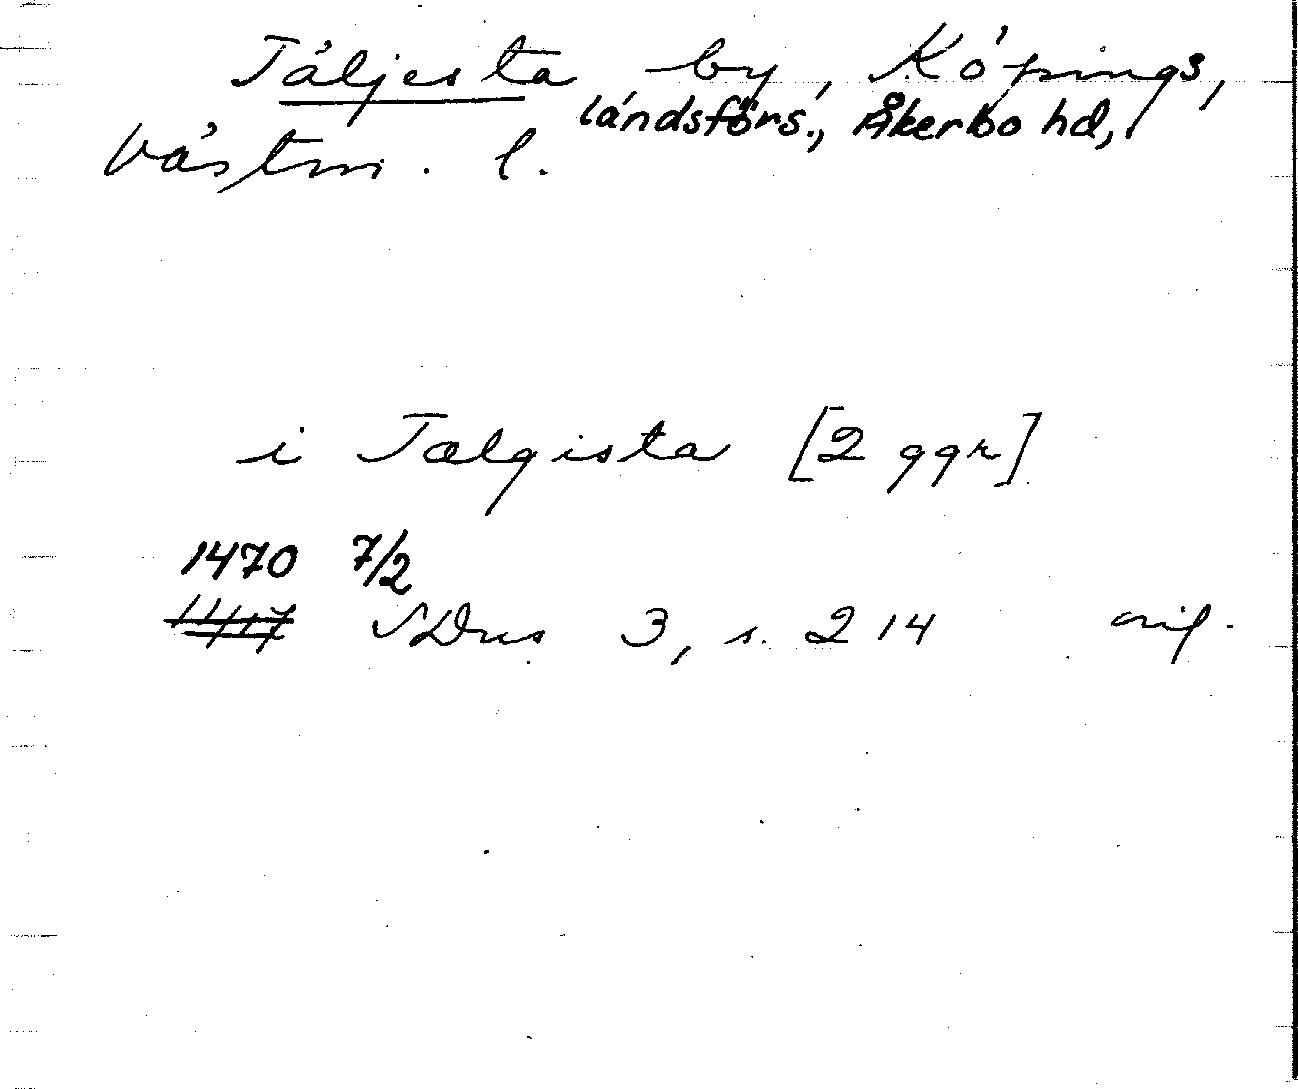 Täljesta by, Köpings,
landsförs., Åkerbo hd,
Västm. l.
i Tælgista [2 ggr]
1470 7/2
1417 SDns 3, s. 214 orig.